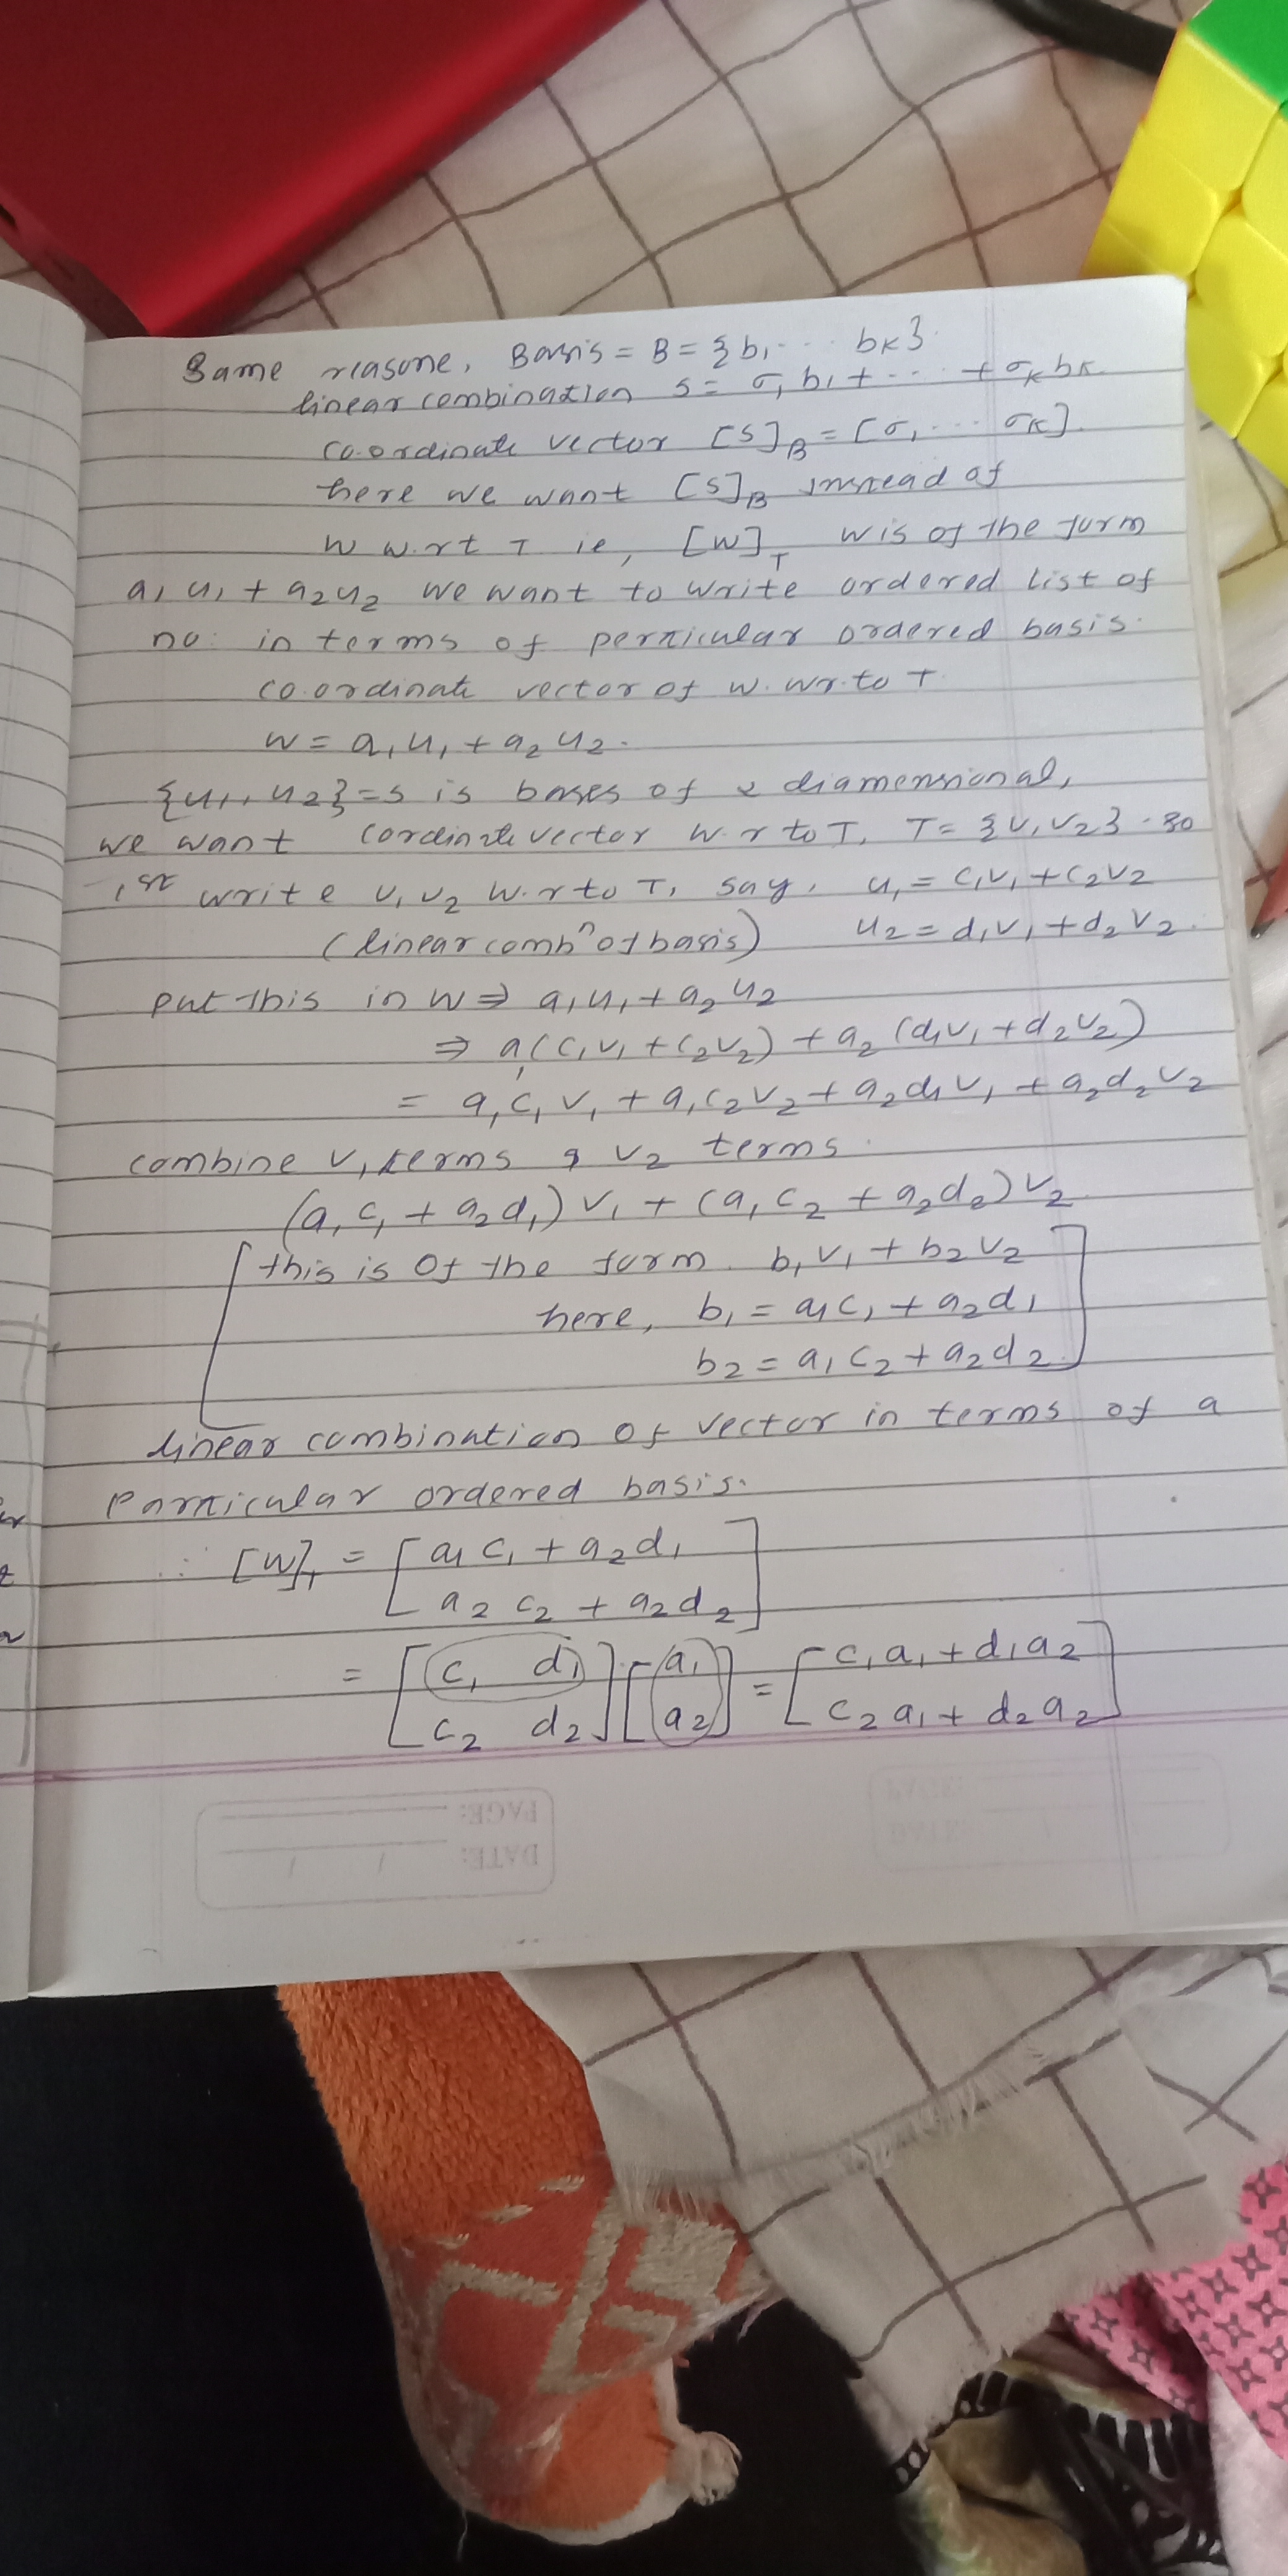 Same reasone, Basis = B = {b₁ ... bₖ}.
linear combination s = σ₁b₁ + ... + σₖbₖ.
co.ordinate vector [s]_B = [σ₁ ... σₖ].
here we want [s]_B instead of
W w.r.t T ie, [W]_T W is of the form
a₁u₁ + a₂u₂ we want to write ordered list of
no: in terms of perticular ordered basis.
co.ordinate vector of w. wr.to T
W = a₁u₁ + a₂u₂.
{u₁, u₂} = s is bases of 2 diamensional,
we want cordinate vector w.r to T, T = {v₁v₂} . so
1st write v₁ v₂ w.r to T, say, u₁ = c₁v₁ + c₂v₂
(linear combⁿ of basis) u₂ = d₁v₁ + d₂v₂.
put this in W ⇒ a₁u₁ + a₂u₂
⇒ a₁(c₁v₁ + c₂v₂) + a₂(d₁v₁ + d₂v₂)
= a₁c₁v₁ + a₁c₂v₂ + a₂d₁v₁ + a₂d₂v₂
combine v₁ terms & v₂ terms.
(a₁c₁ + a₂d₁)v₁ + (a₁c₂ + a₂d₂)v₂
[this is of the form b₁v₁ + b₂v₂
here, b₁ = a₁c₁ + a₂d₁
b₂ = a₁c₂ + a₂d₂]
linear combination of vector in terms of a
Particular ordered basis.
∴ [W]_T = [a₁c₁ + a₂d₁
a₂c₂ + a₂d₂]
= [c₁ d₁ [a₁ = [c₁a₁ + d₁a₂
c₂ d₂] a₂] c₂a₁ + d₂a₂]
PAGE:
DATE: / /